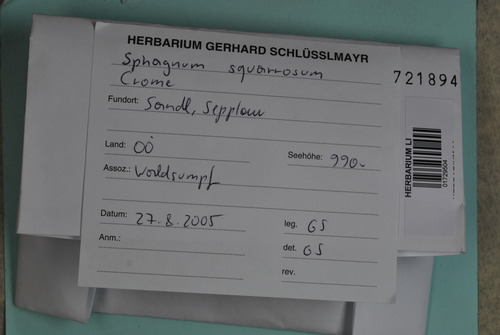 HERBARIUM GERHARD SCHLÜSSLMAYR
Sphagnum squarrosum
Crome
721894
Fundort: Sandl,
Land: OÖ
Seehöhe: 990.-
Assoz.: Waldsumpf
Datum: 27.8.2005
leg. GS
Anm.:
det. GS
rev.
HERBARIUM LI